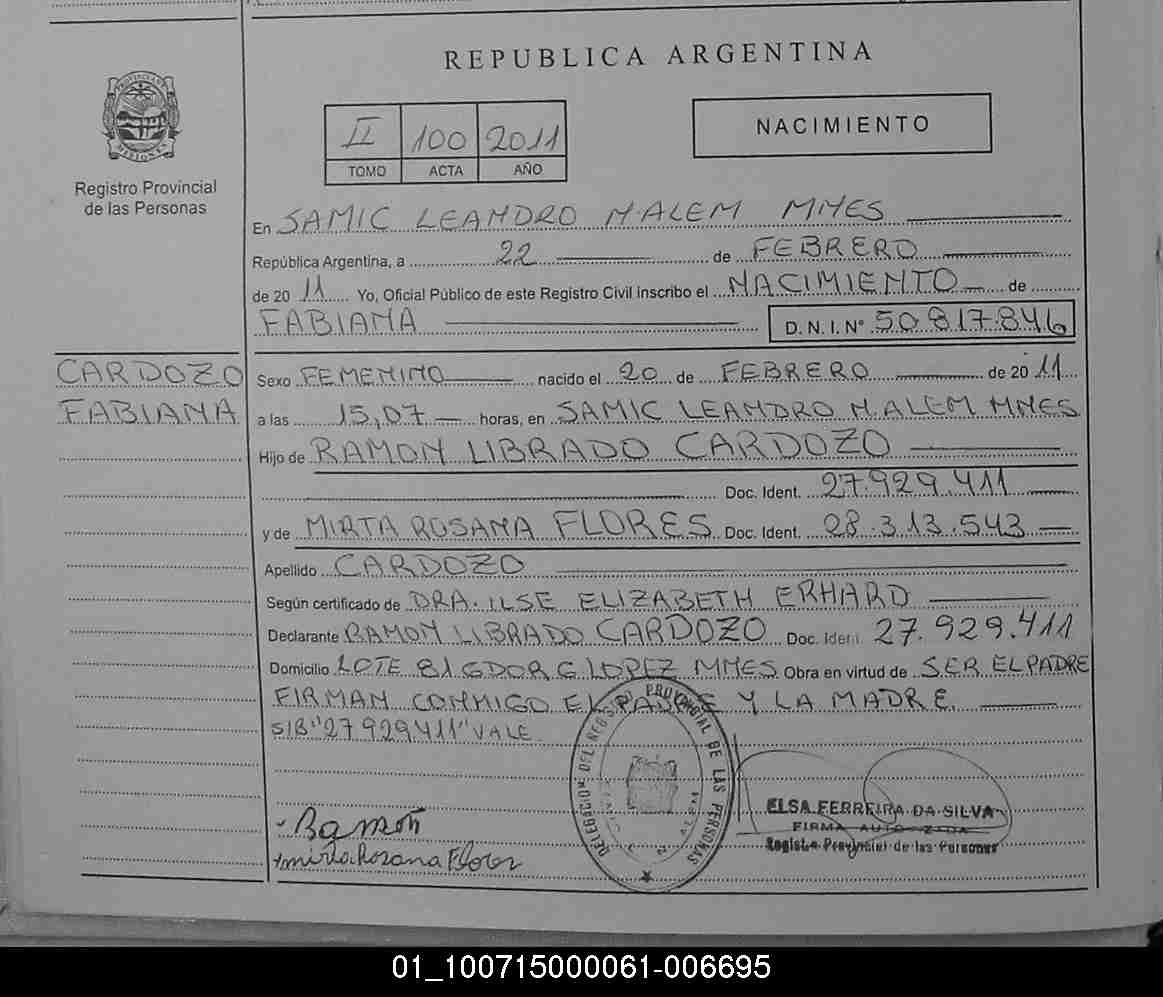 REPUBLICA ARGENTINA
PROVINCIA DE MISIONES
Registro Provincial
de las Personas
II 100 2011
TOMO ACTA AÑO
NACIMIENTO
En SAMIC LEANDRO N ALEM MNES
República Argentina, a 22 de FEBRERO
de 20 11 Yo, Oficial Público de este Registro Civil inscribo el NACIMIENTO de
FABIANA D. N. I. Nº 50 817.846
CARDOZO
FABIANA
Sexo FEMENINO nacido el 20 de FEBRERO de 20 11
a las 15,07 horas, en SAMIC LEANDRO N. ALEM MNES
Hijo de RAMON LIBRADO CARDOZO
Doc. Ident. 27.929.411
y de MIRTA ROSANA FLORES Doc. Ident. 28.313.543
Apellido CARDOZO
Según certificado de DRA. ILSE ELIZABETH ERHARD
Declarante RAMON LIBRADO CARDOZO Doc. Ident. 27.929.411
Domicilio LOTE 81 GDOR G LOPEZ MNES Obra en virtud de SER EL PADRE
FIRMAN CONMIGO EL PADRE Y LA MADRE
S/B "27929411" VALE
DELEGACION DEL REGISTRO PROVINCIAL DE LAS PERSONAS
ELSA FERREIRA DA SILVA
FIRMA AUTORIZADA
Registro Provincial de las Personas
Ramón
mirta Rosana Flores
01_100715000061-006695